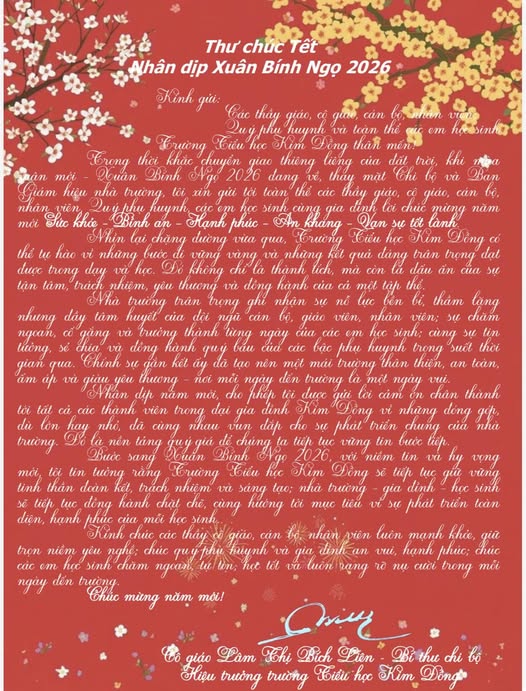 Thư chúc Tết
Nhân dịp Xuân Bính Ngọ 2026
Kính gửi:
Các thầy giáo, cô giáo, cán bộ, nhân viên
Quý phụ huynh và toàn thể các em học sinh
Trường Tiểu học Kim Đồng thân mến!
Trong thời khắc chuyển giao thiêng liêng của đất trời, khi mùa
xuân mới - Xuân Bính Ngọ 2026 đang về, thay mặt Chi bộ và Ban
Giám hiệu nhà trường, tôi xin gửi tới toàn thể các thầy giáo, cô giáo, cán bộ,
nhân viên, Quý phụ huynh, các em học sinh cùng gia đình lời chúc mừng năm
mới Sức khỏe - Bình an - Hạnh phúc - An khang - Vạn sự tốt lành.
Nhìn lại chặng đường vừa qua, Trường Tiểu học Kim Đồng có
thể tự hào vì những bước đi vững vàng và những kết quả đáng trân trọng đạt
được trong dạy và học. Đó không chỉ là thành tích, mà còn là dấu ấn của sự
tận tâm, trách nhiệm, yêu thương và đồng hành của cả một tập thể.
Nhà trường trân trọng ghi nhận sự nỗ lực bền bỉ, thầm lặng
nhưng đầy tâm huyết của đội ngũ cán bộ, giáo viên, nhân viên; sự chăm
ngoan, cố gắng và trưởng thành từng ngày của các em học sinh; cùng sự tin
tưởng, sẻ chia và đồng hành quý báu của các bậc phụ huynh trong suốt thời
gian qua. Chính sự gắn kết ấy đã tạo nên một mái trường thân thiện, an toàn,
ấm áp và giàu yêu thương - nơi mỗi ngày đến trường là một ngày vui.
Nhân dịp năm mới, cho phép tôi được gửi lời cảm ơn chân thành
tới tất cả các thành viên trong đại gia đình Kim Đồng vì những đóng góp,
dù lớn hay nhỏ, đã cùng nhau vun đắp cho sự phát triển chung của nhà
trường. Đó là nền tảng quý giá để chúng ta tiếp tục vững tin bước tiếp.
Bước sang Xuân Bính Ngọ 2026, với niềm tin và hy vọng
mới, tôi tin tưởng rằng Trường Tiểu học Kim Đồng sẽ tiếp tục giữ vững
tinh thần đoàn kết, trách nhiệm và sáng tạo; nhà trường - gia đình - học sinh
sẽ tiếp tục đồng hành chặt chẽ, cùng hướng tới mục tiêu vì sự phát triển toàn
diện, hạnh phúc của mỗi học sinh.
Kính chúc các thầy cô giáo, cán bộ, nhân viên luôn mạnh khỏe, giữ
trọn niềm yêu nghề; chúc quý phụ huynh và gia đình an vui, hạnh phúc; chúc
các em học sinh chăm ngoan, tự tin, học tốt và luôn rạng rỡ nụ cười trong mỗi
ngày đến trường.
Chúc mừng năm mới!
Cô giáo Lâm Thị Bích Liên - Bí thư chi bộ
Hiệu trưởng trường Tiểu học Kim Đồng